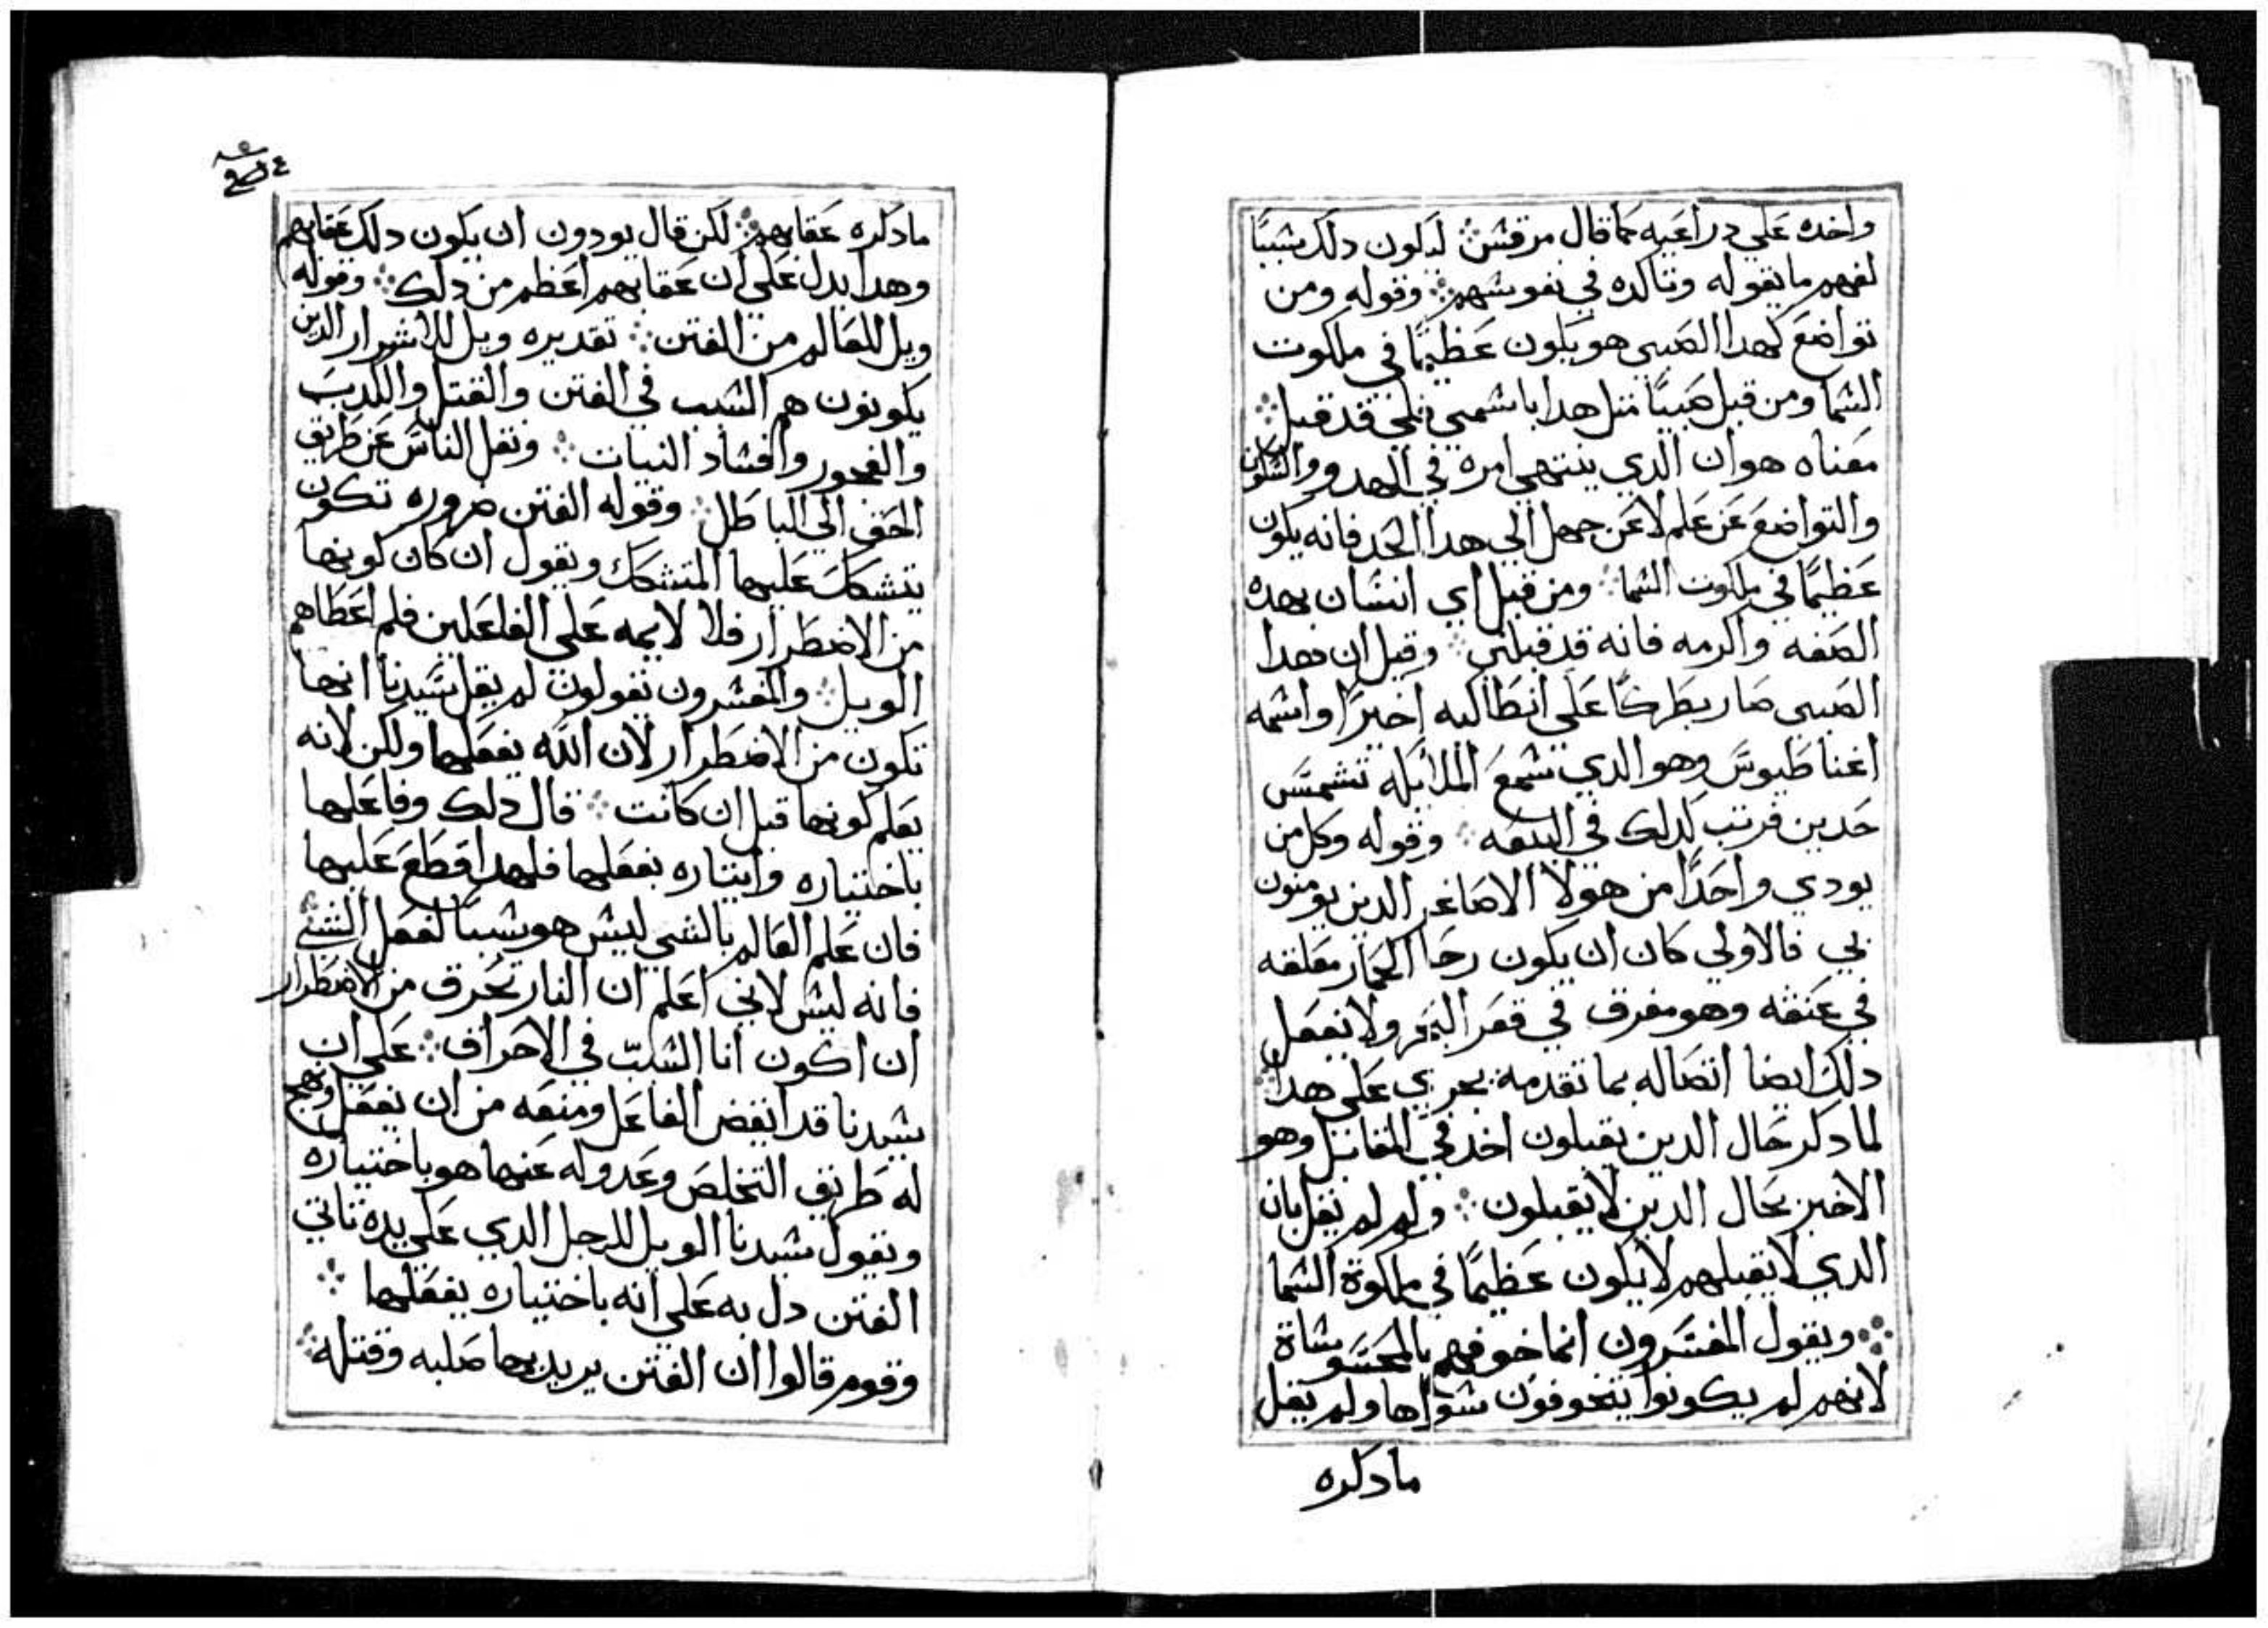 واخده علي دراعيه كما قال مرقس ليكون دلك سببًا
لفهم ما يقوله وتاكده في نفوسهم ⁘ وقوله ومن
تواضع كهدا الصبي هو يكون عظيمًا في ملكوت
السما ومن قبل صبيًا متل هدا باسمي فلي قد قبل ⁘
معناه هو ان الدي ينتهي امره في الهدوو والسكون
والتواضع عن علم لا عن جهل الي هدا الحد فانه يكون
عظيمًا في ملكوت السما ⁘ ومن قبل اي انسان بهده
الصفه واكرمه فانه قد قبلني ⁘ وقيل ان هدا
الصبي صار بطركًا علي انطاكيه اخيرًا واسمه
اغناطيوس وهو الدي سمع الملايكه تشمس
حدين فرتب كدلك في البيعه ⁘ وقوله وكل من
يودي واحدًا من هولا الاصاغر الدين يومنون
بي فالاولي كان ان يكون رحا الحمار معلقه
في عنقه وهو مغرق في قعر البحر ولا يفعل
دلك ايضا اتصاله بما تقدمه يجري علي هدا ⁘
لما دكر حال الدين يقبلون اخد في المقابل وهو
الاخبر بحال الدين لا يقبلون ⁘ ولم لم يقل بان
الدي لا يقبلهم لا يكون عظيمًا في ملكوة السما
⁘ ويقول المفسرون انما خوفهم بالمحسوساة
لانهم لم يكونوا يتخوفون سواها ولم يقل
ما دكره
ما دكره عقابهم ⁘ لكن قال يودون ان يكون دلك عقابهم
وهدا يدل علي ان عقابهم اعظم من دلك ⁘ وقوله
ويل للعالم من الفتن ⁘ تقديره ويل للاشرار الدين
يكونون هم السبب في الفتن والقتل والكدب
والفجور وافساد النيات ⁘ ونقل الناس عن طريق
الحق الي الباطل ⁘ وقوله الفتن ضروره تكون
يتشكك عليها المتشكك ويقول ان كان كونها
من الاضطرار فلا لايمه علي الفاعلين فلم اعطاهم
الويل ⁘ والمفسرون يقولون لم يقل سيدنا انها
تكون من الاضطرار لان الله يفعلها ولكن لانه
يعلم كونها قبل ان كانت ⁘ قال دلك وفاعلها
باختياره وايتاره يفعلها فلهدا قطع عليها
فان علم العالم بالشي ليس هو سببًا لفعل الشي
فانه ليس لاني اعلم ان النار تحرق من الاضطرار
ان اكون انا السبب في الاحراق ⁘ علي ان
سيدنا قد انقض الفاعل ومنعه من ان يفعل ونهج
له طريق التخلص وعدوله عنها هو باختياره
وبقول سيدنا الويل للرجل الدي علي يده تاتي
الفتن دل به علي انه باختياره يفعلها ⁘
وقوم قالوا ان الفتن يريد بها صلبه وقتله ⁘